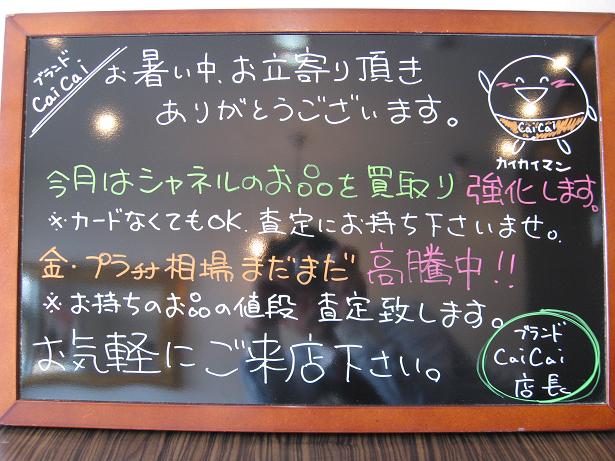 ブランド
CaiCai
お暑い中、お立寄り頂き
ありがとうございます。
CaiCai
カイカイマン
今月はシャネルのお品を買取り強化します。
※カードなくてもOK.査定にお持ち下さいませ。
金・プラチナ相場まだまだ高騰中!!
※お持ちのお品の値段 査定致します。
お気軽にご来店下さい。
ブランド
CaiCai
店長